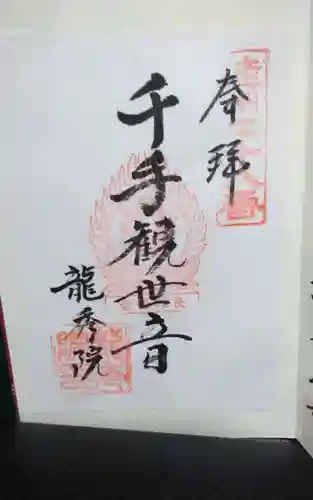 奉拜
千手観世音
龍秀院